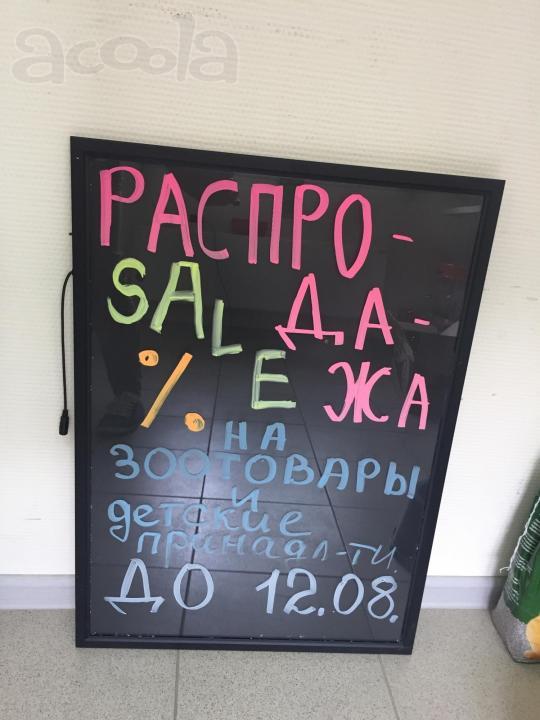 acoola
РАСПРО-
SALE ДА-
% ЖА
НА
ЗООТОВАРЫ
И
детские
принадл-ти
ДО 12.08.